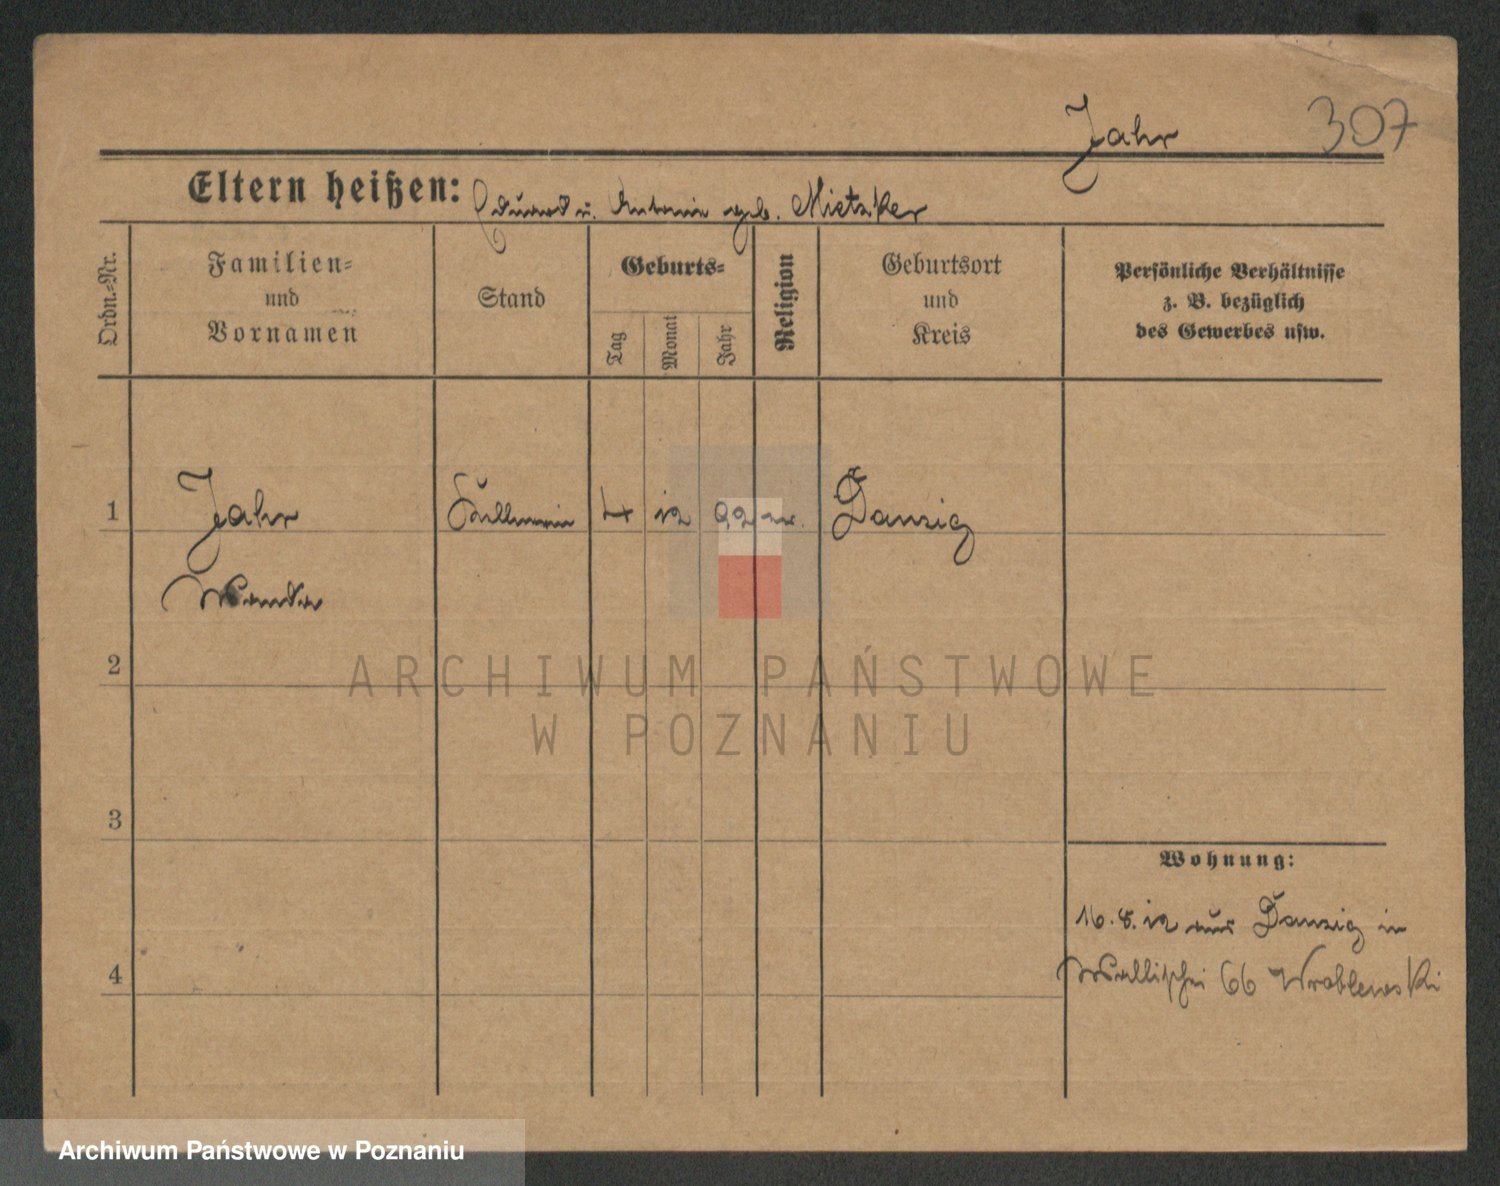 Jahr 307
Eltern heißen: Eduard u. Antonie geb. Mietziker
Ordn.-Nr.
Familien-
und
Vornamen
Stand
Geburts-
Tag
Monat
Jahr
Religion
Geburtsort
und
Kreis
Persönliche Verhältnisse
z. B. bezüglich
des Gewerbes usw.
1 Jahr 4 12 92 Danzig
Wanda
2
ARCHIWUM PAŃSTWOWE
W POZNANIU
3
Wohnung:
16. 8. 12 aus Danzig in
4
Wallischei 66 Wroblewski
Archiwum Państwowe w Poznaniu